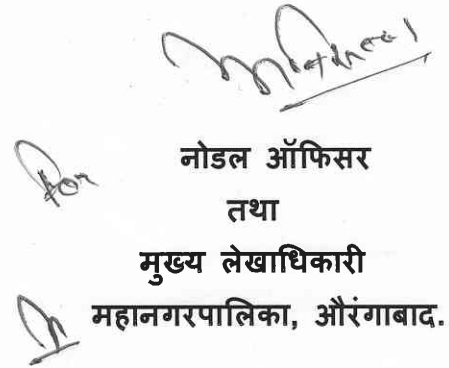 For
नोडल ऑफिसर
तथा
मुख्य लेखाधिकारी
महानगरपालिका, औरंगाबाद.